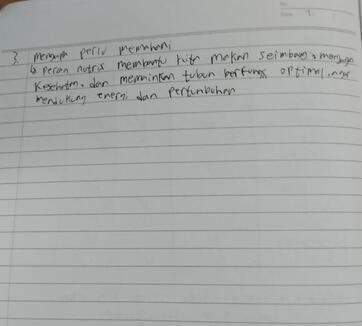 3. mengapa perlu memahami
↳ peran nutrisi membantu kita makan seimbang, menjaga
kesehatan, dan memainkan tubuh berfungsi optimal,
mendukung energi dan pertumbuhan